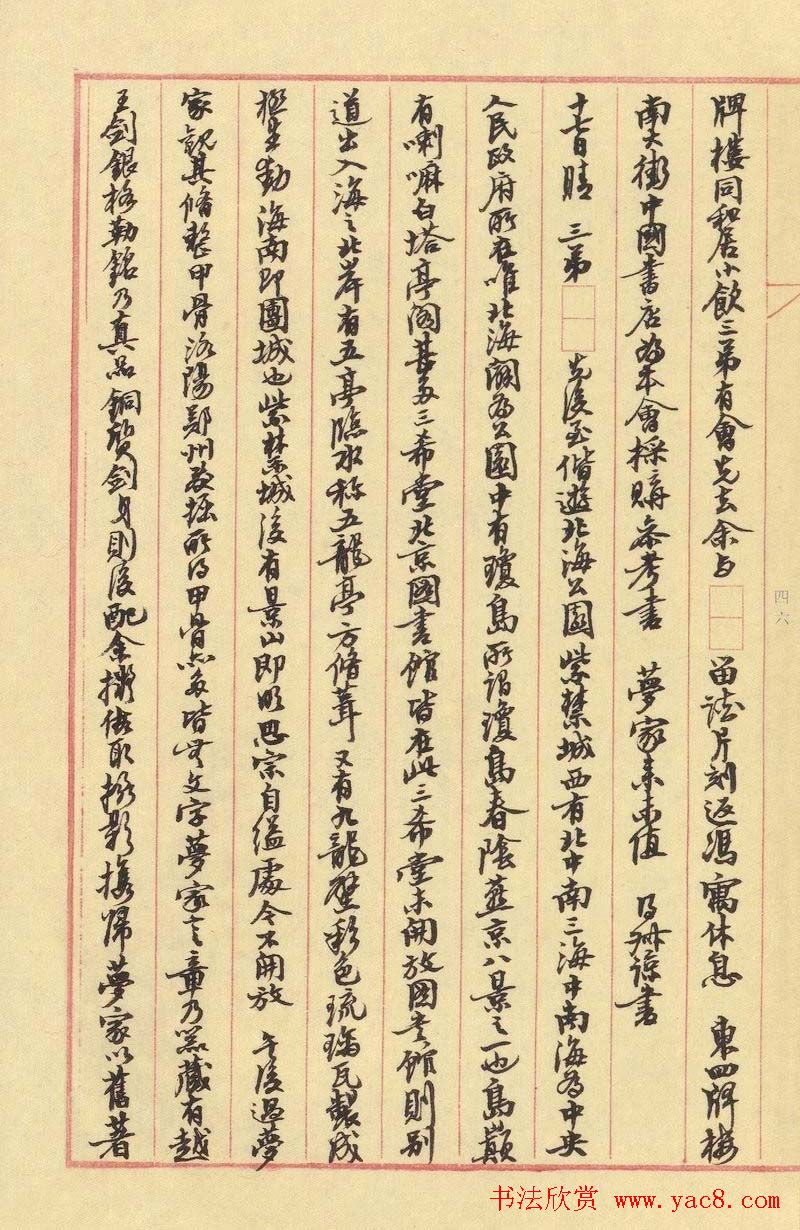 牌樓同和居小飲三弟有會先去余與□□留談片刻返馮寓休息 東四牌樓
南大街中國書店為本會採購參考書 夢家来未值 得
十七日晴 三弟□□先後至偕遊北海公園紫禁城西有北中南三海中南海為中央
人民政府所在唯北海闢為公園中有瓊島所謂瓊島春陰燕京八景之一也島巔
有喇嘛白塔亭閣甚多三希堂北京圖書館皆在此三希堂未開放圖書館則別
道出入海之北岸有五亭臨水称五龍亭方脩葺 又有九龍壁彩色琉璃瓦製成
極生動海南即團城也紫禁城後有景山即明思宗自縊處今不開放 午後過夢
家觀其脩整甲骨洛陽鄭州發掘所得甲骨亦多皆無文字夢家言章乃器藏有越
王劍銀格勒銘乃真品銅質劍身則後配余擬借取撮影携歸夢家以舊著
四六
书法欣赏 www.yac8.com